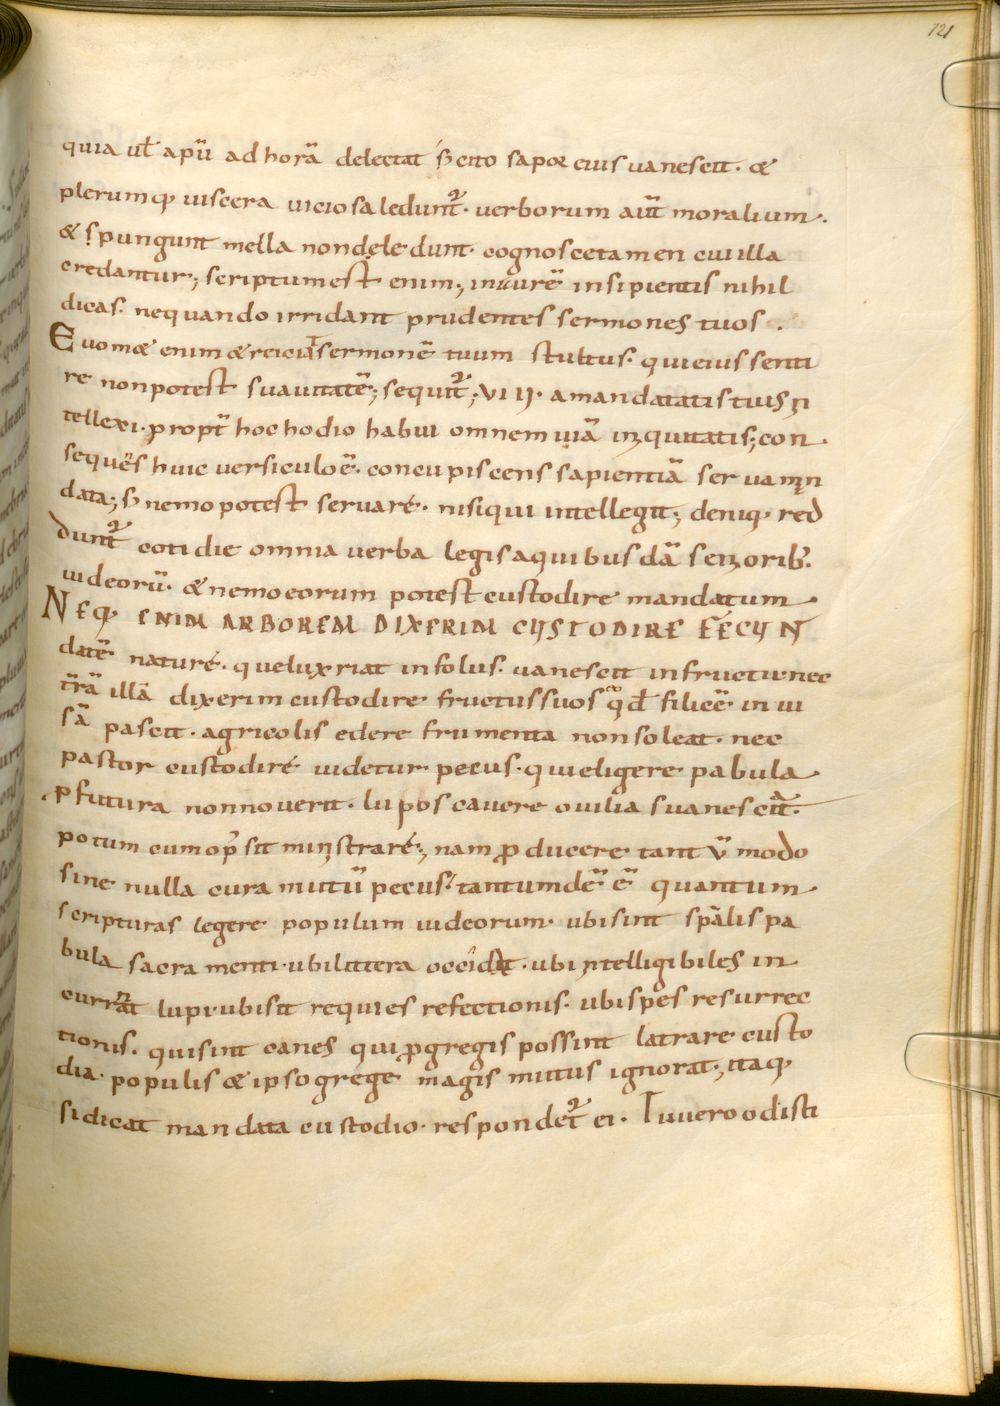 121
quia ul̄ apū ad horā delectat s; cito sapor eius uanescit. &
plerumq; uiscera uiciosa ledunt̄. uerborum aūt moralium.
& si pungunt mella non dele dunt. cognosce tamen cui illa
credantur; scriptum est enim; in aurē insipientis nihil
dicas. nequando irridant prudentes sermones tuos.
Euom& enim & reiciat sermonē tuum stultus. qui eius senti
re non potest suauitatē; sequit̄; VIII. a mandatatis tuis in
tellexi. propt̄ hoc hodio habui omnem uiā iniquitatis; con.
sequēs huic uersiculo ē. concupiscens sapientiā serua man
data; s; nemo potest seruare. nisi qui intellegit; deniq; red
dunt̄ cotidie omnia uerba legis a quibusdā seniorib;
iudeorū. & nemo eorum potest custodire mandatum.
NEQ; ENIM ARBOREM DIXERIM CUSTODIRE FECUN
datē nature. que luxriat in folus. uanescit in fructu nec
t̄rā illā dixerim custodire fructus suos qd̄ filicē in ui
sā pascit. agricolis edere frumenta non soleat. nec
pastor custodire uidetur pecus. qui eligere pabula
p futura non nouerit. lupos cauere ouilia suanescit̄.
potum cum op̄ sit ministrare; nam producere tant ū modo
sine nulla cura mutū pecus. tantumdē ē quantum
scripturas legere populum iudeorum. ubi sint sp̄alis pa
bula sacra menti. ubi littera occidit. ubi intelligibiles in
currant lupi. ubi sit requies refectionis. ubi spes resurrec
tionis. qui sint canes qui p gregis possint latrare custo
dia. populis & ipso grege magis mutus ignorat; itaq;
si dicat mandata custodio. respondet̄ ei. Tu uero odisti